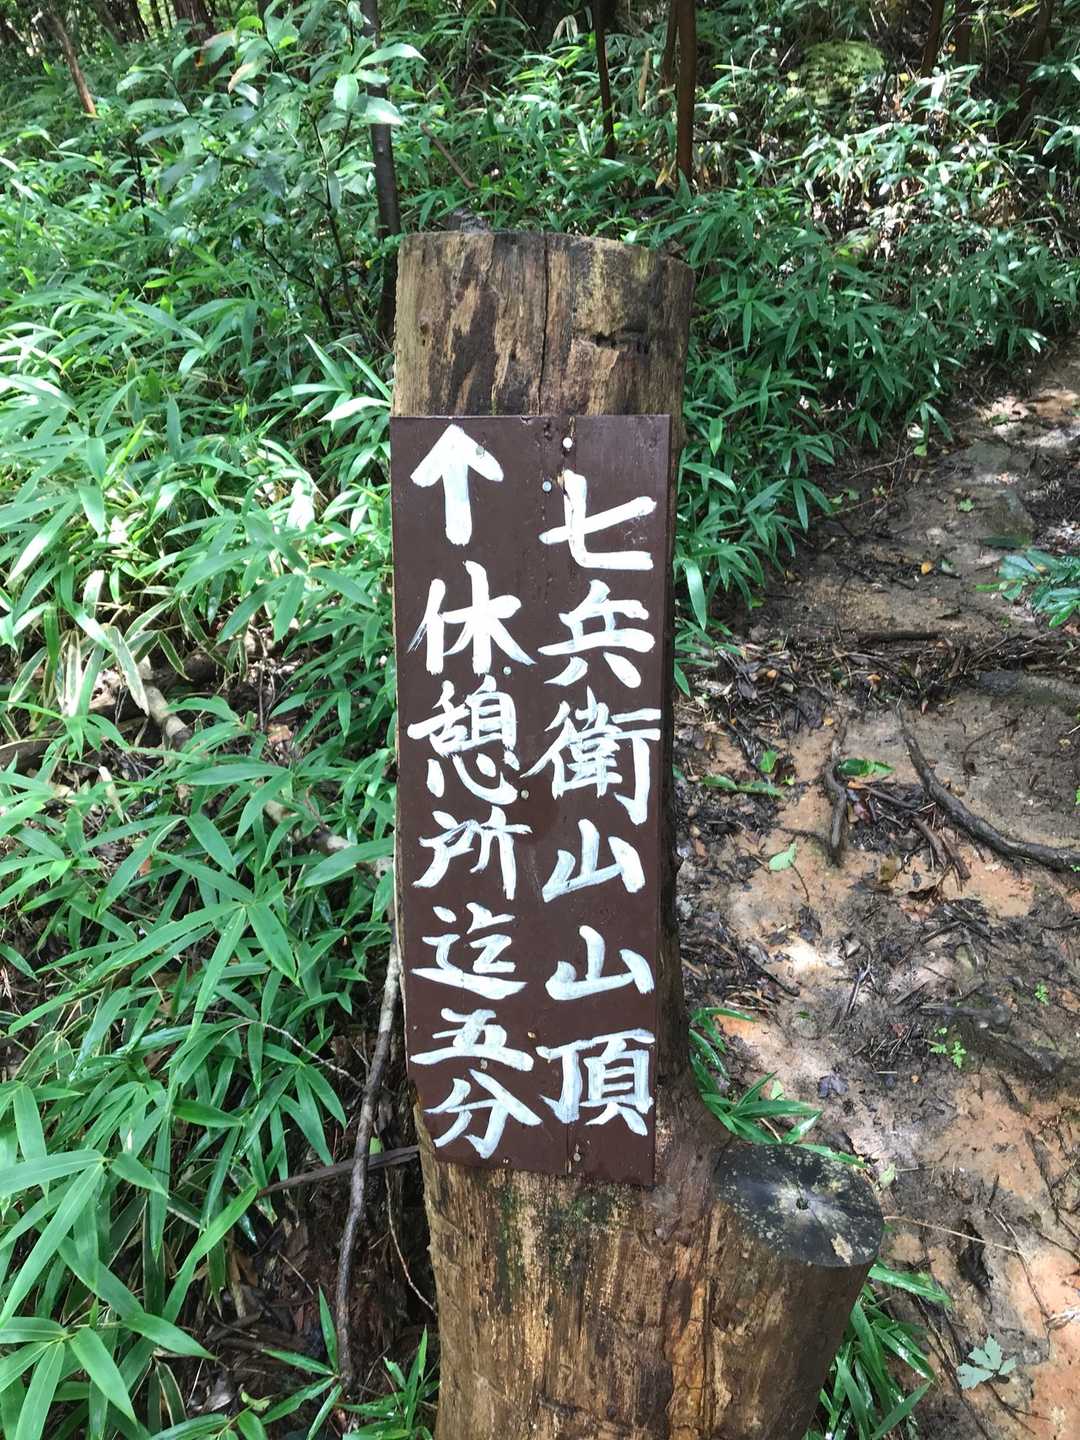 七兵衛山山頂
↑休憩所迄五分